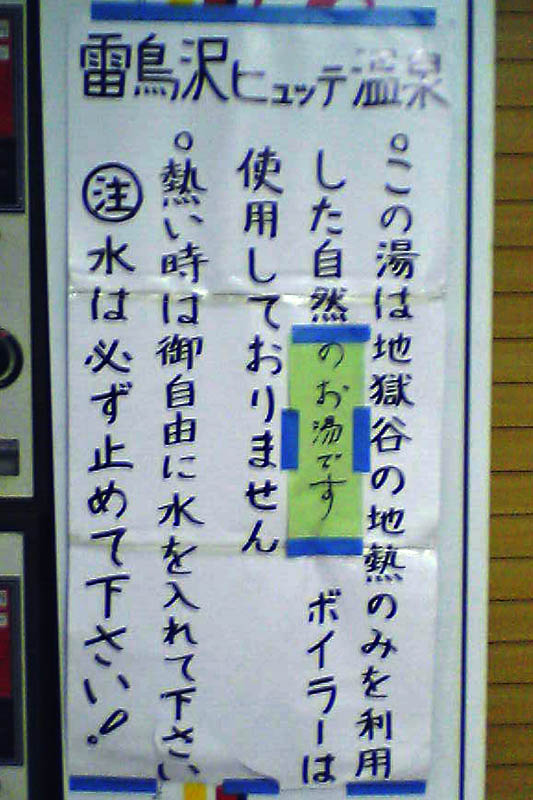 雷鳥沢ヒュッテ温泉
。この湯は地獄谷の地熱のみを利用
した自然のお湯です ボイラーは
使用しておりません
。熱い時は御自由に水を入れて下さい
㊟水は必ず止めて下さい!